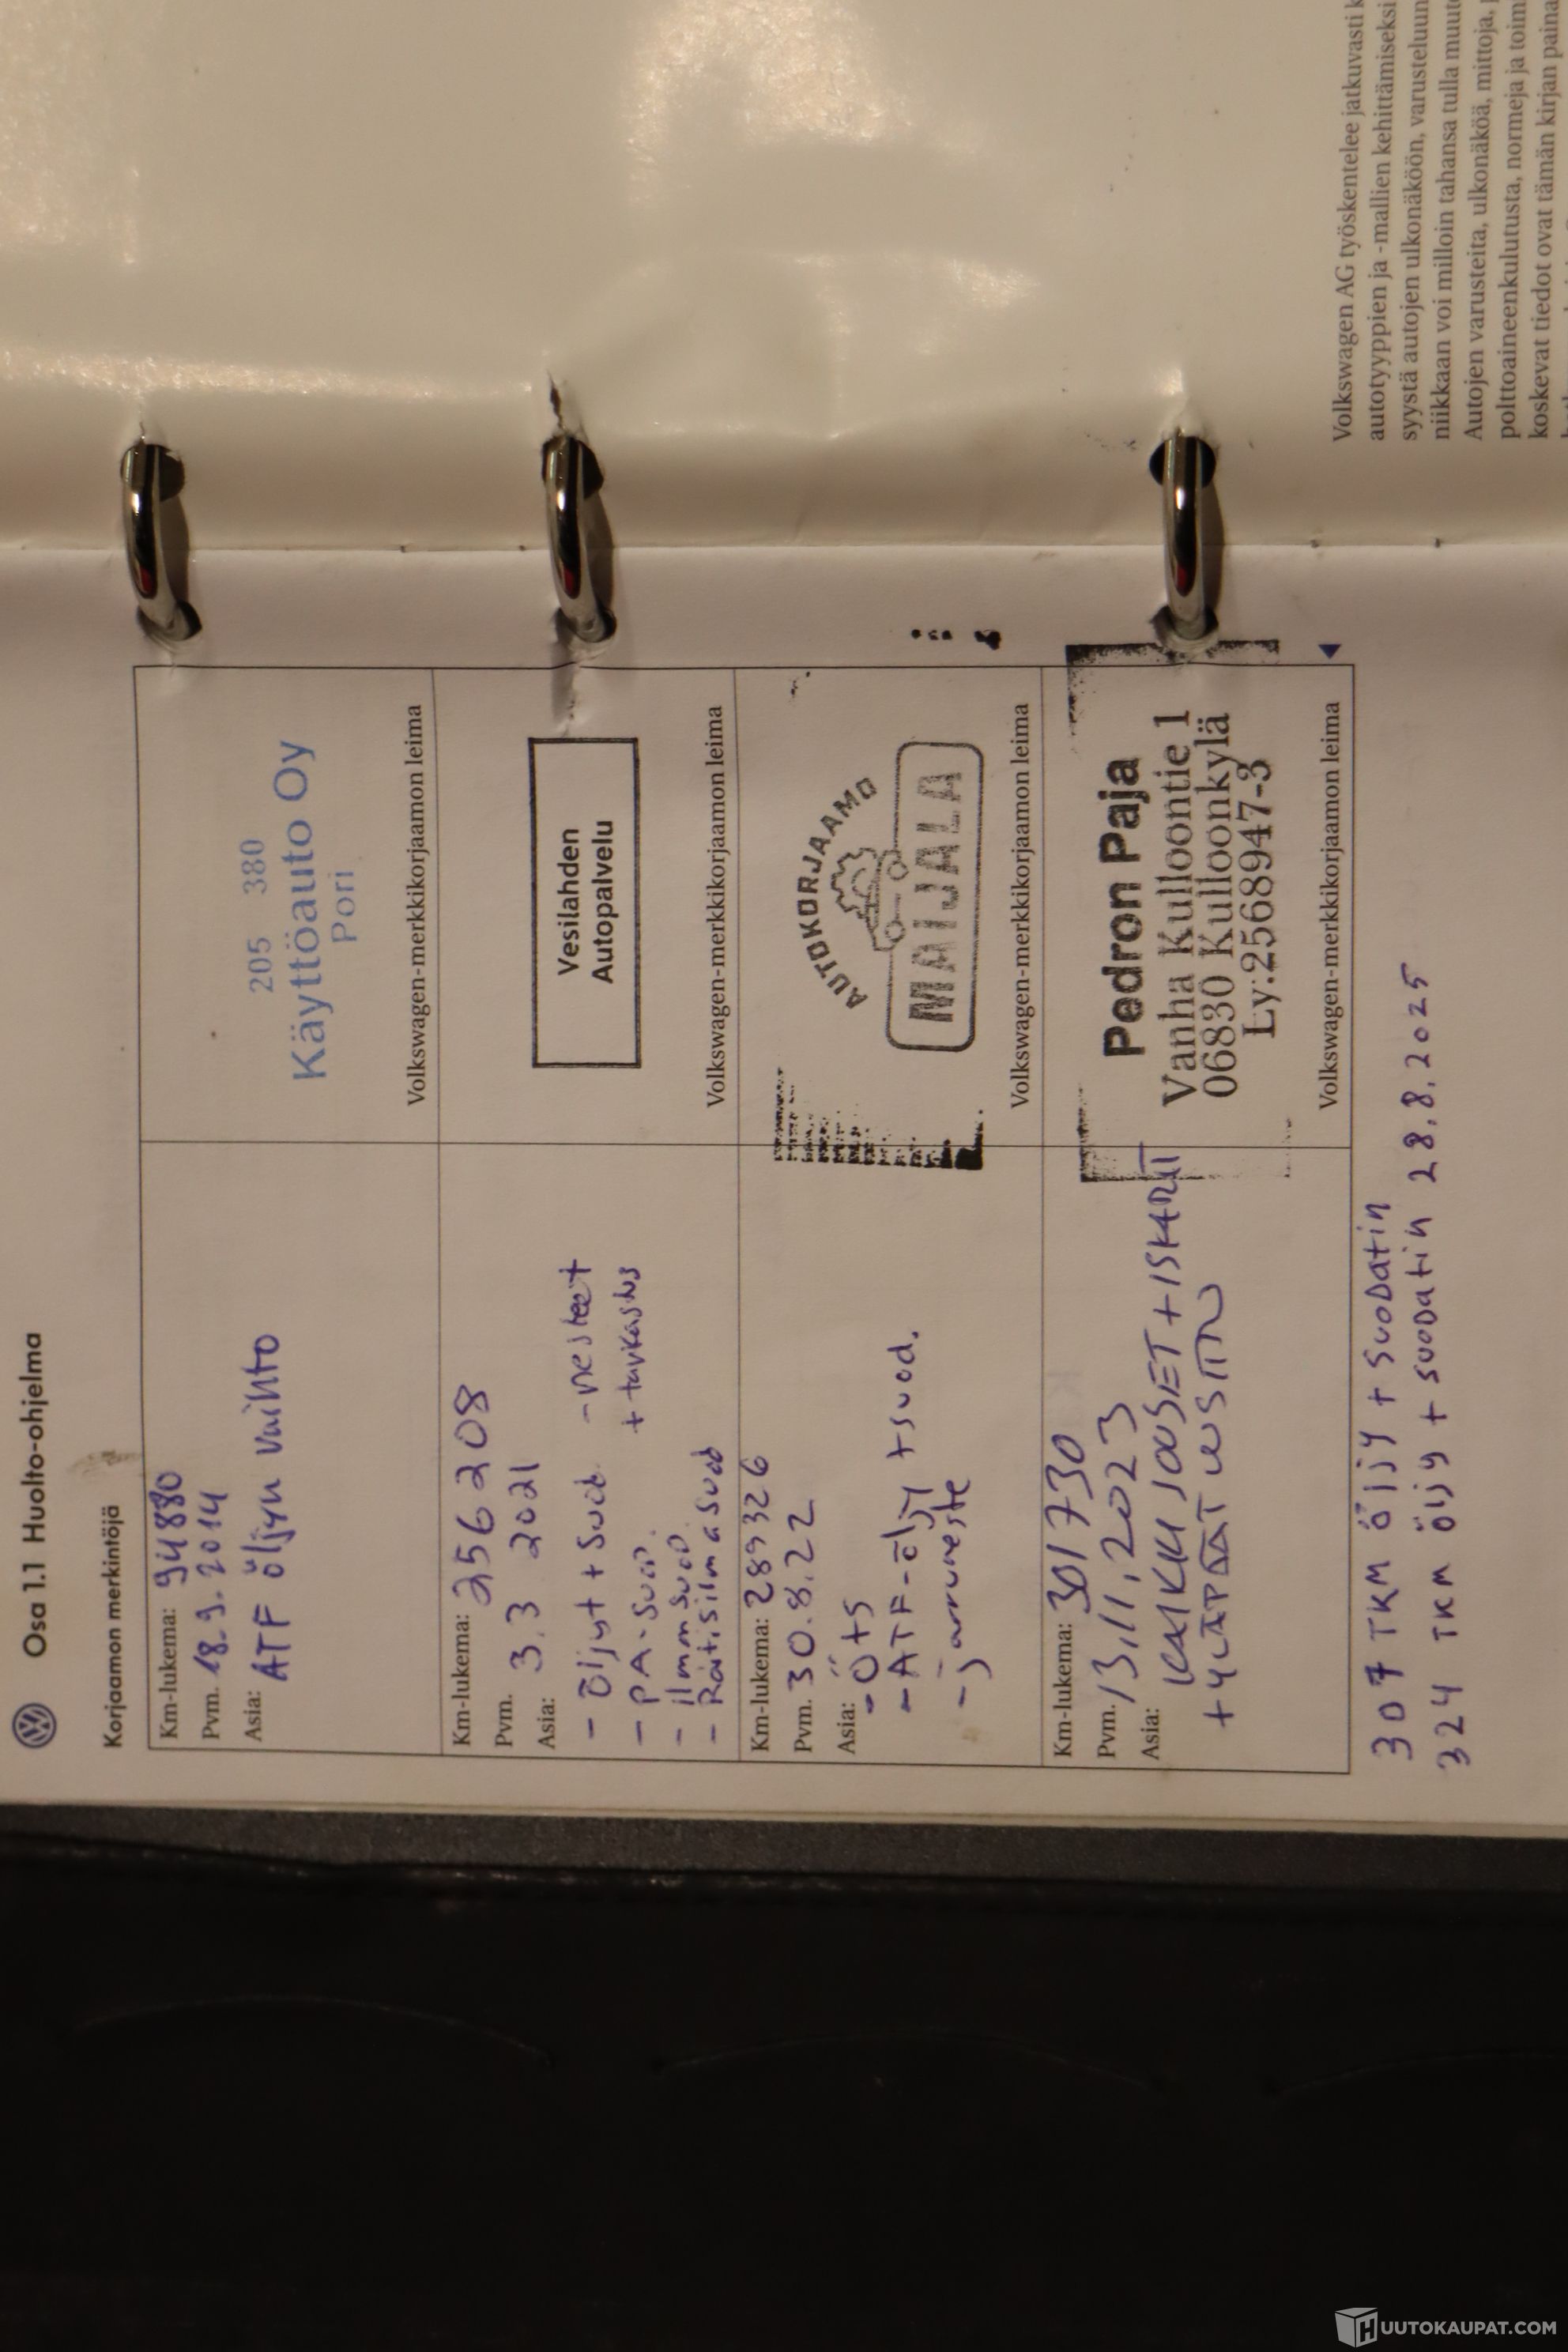 Osa 1.1 Huolto-ohjelma
Korjaamon merkintöjä
Km-lukema: 94880
Pvm. 18.9.2014
Asia: ATF öljyn vaihto
205 380
Käyttöauto Oy
Pori
Volkswagen-merkkikorjaamon leima
Km-lukema: 256208
Pvm. 3.3 2021
Asia:
- öljyt + suod. - nesteet
- PA-suod. + tarkastus
- ilman suod
- Raitisilma suod
Vesilahden
Autopalvelu
Volkswagen-merkkikorjaamon leima
Km-lukema: 289326
Pvm. 30.8.22
Asia:
- öts
- ATF-öljy + suod.
- jarruneste
AUTOKORJAAMO
MAIJALA
Volkswagen-merkkikorjaamon leima
Km-lukema: 301730
Pvm. 13.11.2023
Asia: KAIKKI JOUSET + ISKARIT
+ YLÄPÄÄT UUSITTU
Pedron Paja
Vanha Kulloontie 1
06830 Kulloonkylä
Ly:2568947-3
Volkswagen-merkkikorjaamon leima
307 TKM öljy + suodatin
324 TKM öljy + suodatin 28.8.2025
Volkswagen AG työskentelee jatkuvasti k
autotyyppien ja -mallien kehittämiseksi
syystä autojen ulkonäköön, varusteluun
niikkaan voi milloin tahansa tulla muut
Autojen varusteita, ulkonäköä, mittoja,
polttoaineenkulutusta, normeja ja toim
koskevat tiedot ovat tämän kirjan paina
HUUTOKAUPAT.COM